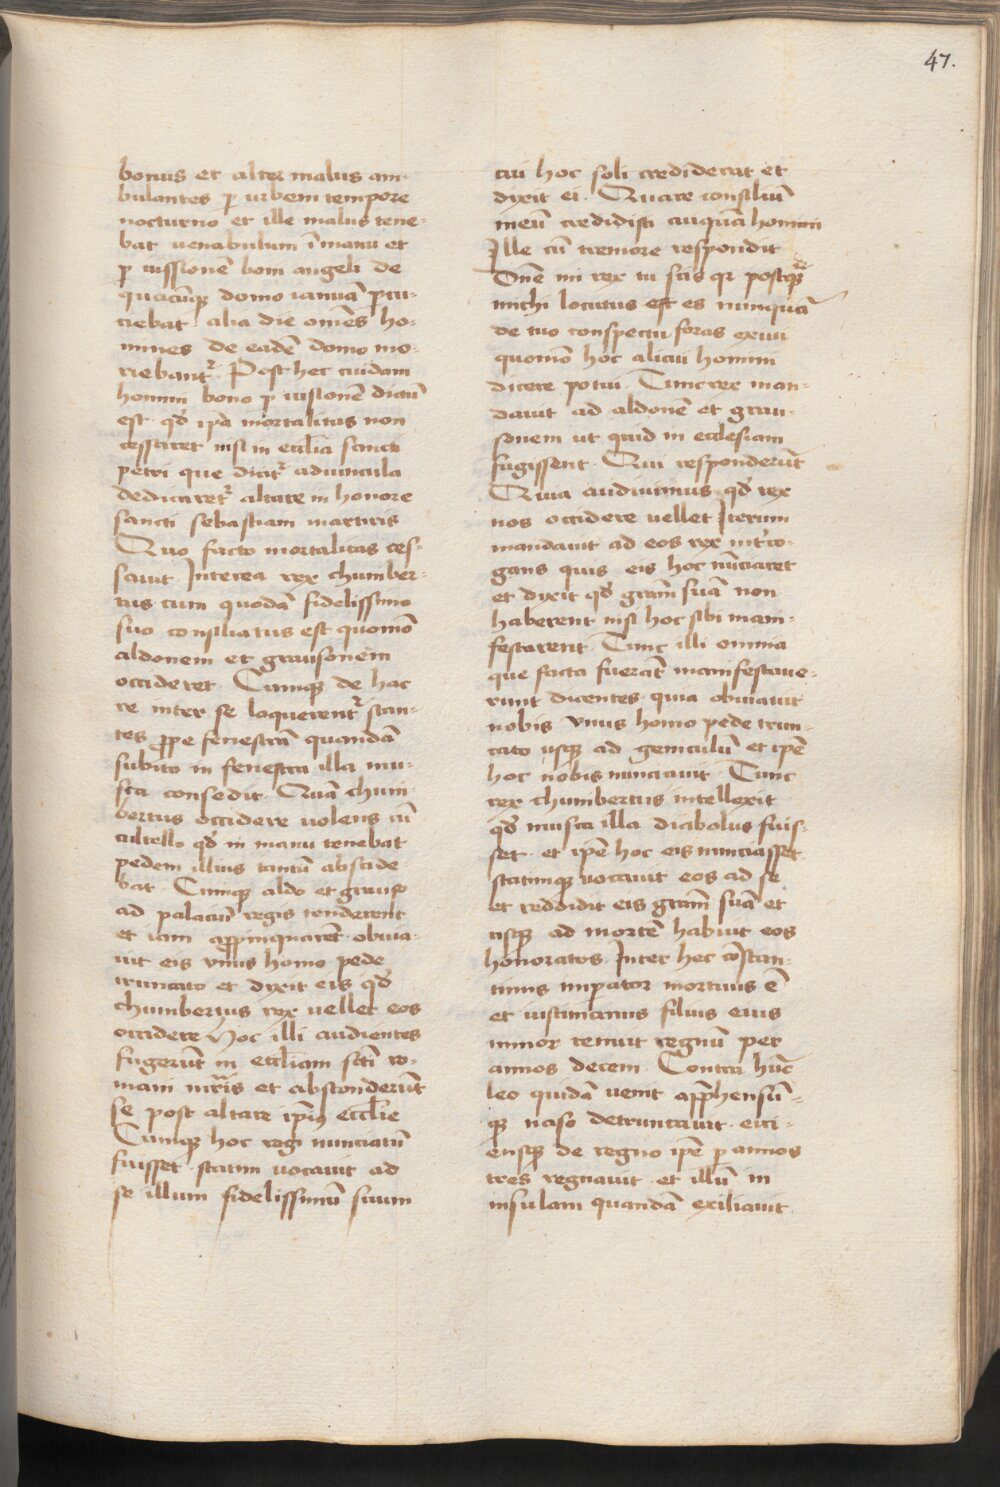 47.
bonus et alter malus am-
bulantes p̱ urbem tempore
nocturno et ille malus tene-
bat uenabulum ī manu et
p̱ iussionē boni angeli de
quacūqꝫ domo ianuā pcu-
ciebat alia die omēs ho-
mines de eadē domo mo-
riebantr̄. Post hec cuidam
homini bono p̱ iusionē dictū
est qd̓ ip̄a mortalitas non
cessaret nisi in eccl̄ia sancti
petri que dicitr̄ aduincula
dedicaretr̄ altare in honore
sancti sebastiani martiris
Quo facto mortalitas ces-
sauit Interea rex chumber-
tus cum quodā fidelissimo
suo consiliatus est quomō
aldonem et grausonem
occideret. Cumqꝫ de hac
re inter se loquerentr̄ stan-
tes ꝓpe fenestrā quandā
subito in fenestra illa mu-
sca consedit. Quā chuni
bertus occidere uolens cū
cultello qd̓ in manu tenebat
pedem illius tantū abscide-
bat. Cumqꝫ aldo et grauso
ad palaciū regis tenderent
et iam aꝓpinquarēt obuia-
uit eis vnus homo pede
truncato et dixit eis qd̓
chumbertus rex uellet eos
occidere Hoc illi audientes
fugerūt in eccl̄iam scti ro-
mani mr̄is et absconderūt
se post altare ip̄iꝰ eccl̄ie
Cumqꝫ hoc regi nunciatū
fuisset statim uocauit ad
se illum fidelissimū suum
cui hoc soli crediderat et
dixit ei. Quare consiliū
meū credidisti cuiquā homini
Ille cū tremore respondit
Dn̄e mi rex tu scis qr postqꝫ̄
michi locutus est es nunquā
de tuo conspectu foras exiui
quomō hoc alicui homini
dicere potui. Tunc rex man-
dauit ad aldonē et grau-
sonem ut quid in ecclesiam
fugissent. Qui responderūt
Quia audiuimus qd̓ rex
nos occidere uellet Iterum
mandauit ad eos rex int̓ro-
gans quis eis hoc nūciaret
et dixit qd̓ grām suā non
haberent nisi hoc sibi mani-
festarent. Tunc illi omnia
que facta fuerāt manifestaue-
runt dicentes quia obuiauit
nobis vnus homo pede trun-
cato usqꝫ ad geniculū et ipē
hoc nobis nunciauit. Tunc
rex chumbertus intellexit
qd̓ musca illa diabolus fuis-
set et ipē hoc eis nunciasset
statimqꝫ uocauit eos ad se
et reddidit eis grām suā et
usqꝫ ad mortē habuit eos
honoratos. Inter hec cōstan-
tinus imperator mortuus ē
et iustinianus filius eius
minor tenuit regnū per
annos decem. Contra hūc
leo quidā uenit app̄hensū-
qꝫ naso detruncauit eici-
ensqꝫ de regno ipē p̱ annos
tres regnauit et illū in
insulam quandā exiliauit